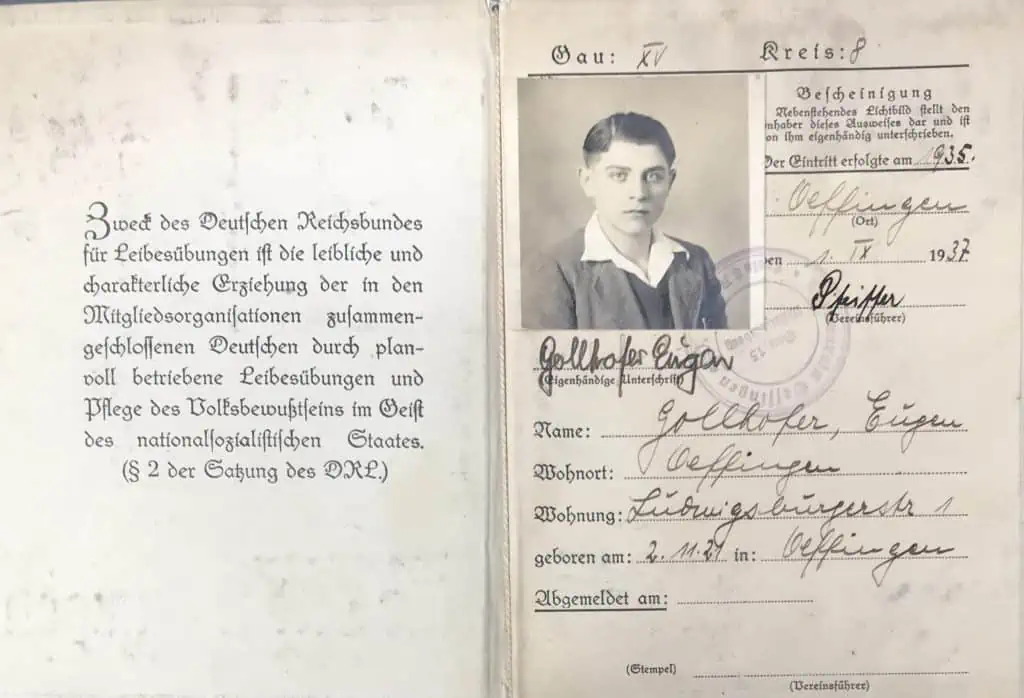 Zweck des Deutschen Reichsbundes
für Leibesübungen ist die leibliche und
charakterliche Erziehung der in den
Mitgliedsorganisationen zusammen-
geschlossenen Deutschen durch plan-
voll betriebene Leibesübungen und
Pflege des Volksbewußtseins im Geist
des nationalsozialistischen Staates.
(§ 2 der Satzung des DRL.)
Gau: XV Kreis: 8
Bescheinigung
Nebenstehendes Lichtbild stellt den
nhaber dieses Ausweises dar und ist
on ihm eigenhändig unterschrieben.
Der Eintritt erfolgte am 1935.
Oeffingen
(Ort)
en 1. IX 1937
Pfeiffer
(Vereinsführer)
Gollhofer Eugen
(Eigenhändige Unterschrift)
Gau 15
Oeffingen
Name: Gollhofer, Eugen
Wohnort: Oeffingen
Wohnung: Ludwigsburgerstr 1
geboren am: 2.11.21 in: Oeffingen
Abgemeldet am:
(Stempel)
(Vereinsführer)